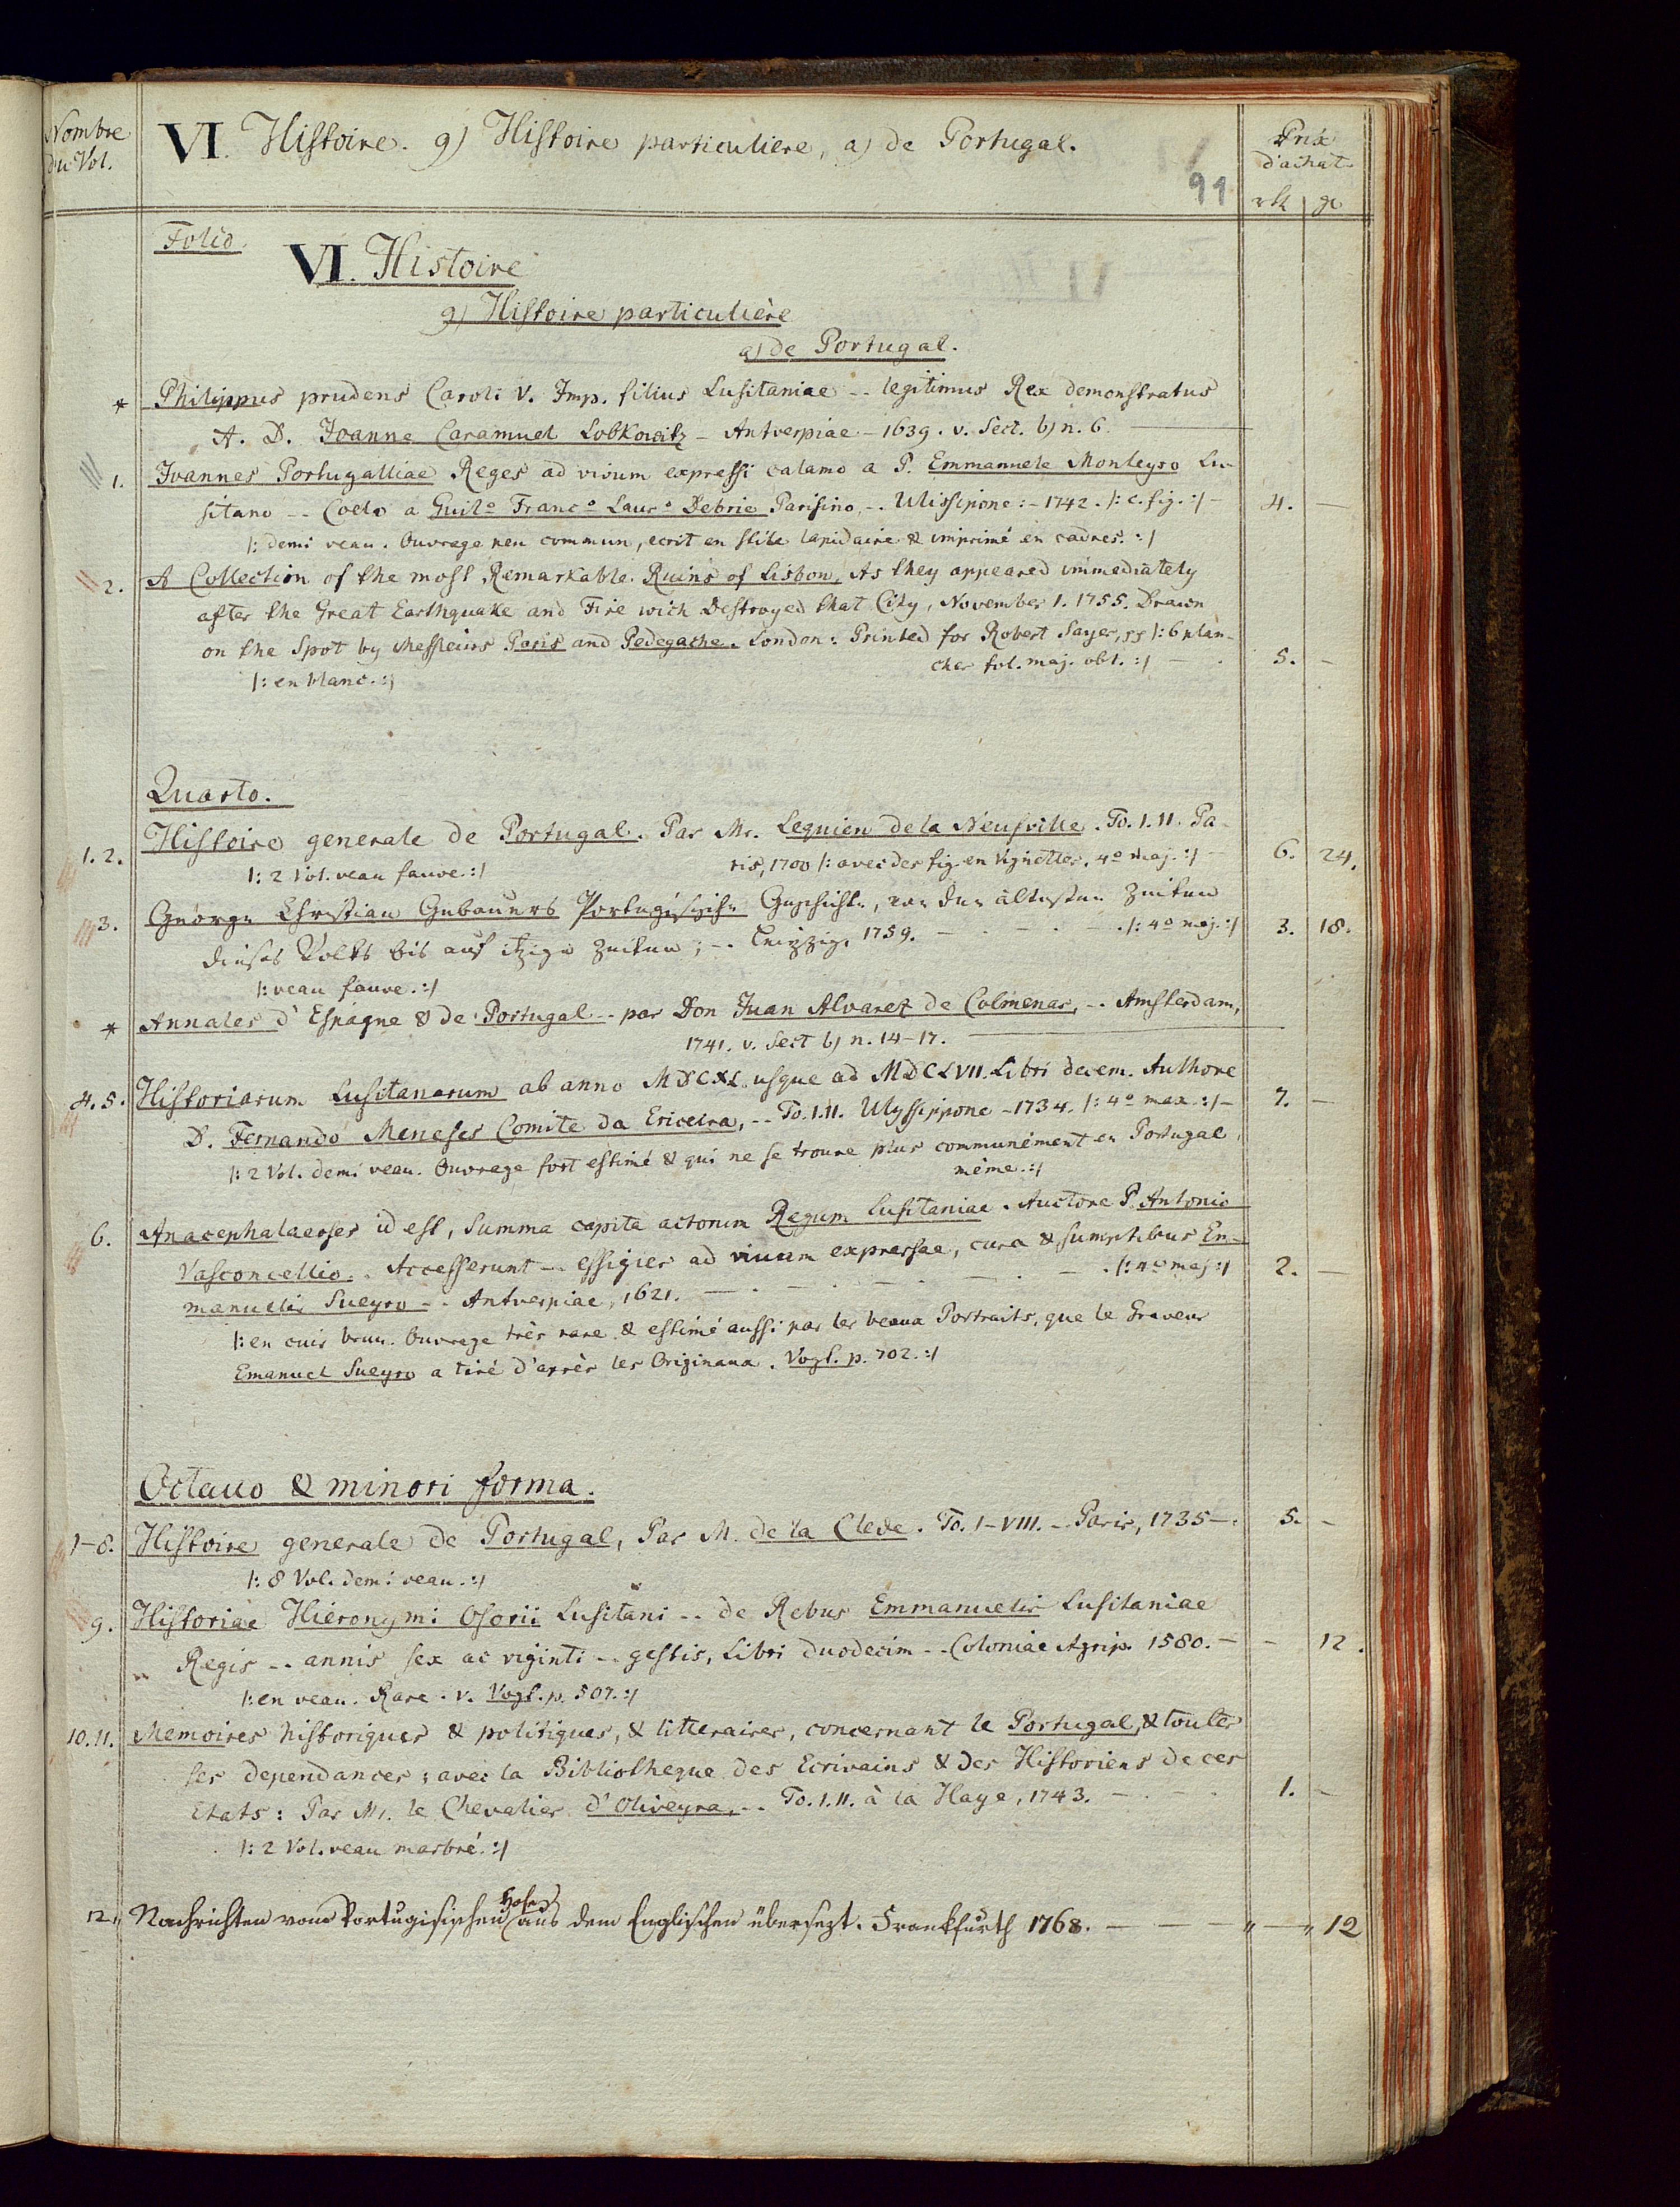 Nombre
du Vol.
VI. Histoire. g) Histoire particuliere, a) de Portugal.
Prix
d'achat
91
rtl gr
Folio.
VI. Histoire
g) Histoire particulière
a) de Portugal.
* Philippus prudens Caroli V. Imp. filius Lusitaniae -- legitimus Rex demonstratus
A. D. Joanne Caramuel Lobkowitz - Antverpiae - 1639. v. Sect. b) n. 6.
1. Joannes Portugalliae Reges ad vivum expressi calamo a P. Emmanuele Monteyro Lu-
sitano -- Coelo a Guilo Franco Lauro Debrie Parisino, -- Ulissipone: - 1742. /: c. fig. :/ - 4. -
/: demi veau. Ouvrage peu commun, ecrit en stile lapidaire & imprimé en cadres. :/
2. A Collection of the most Remarkable Ruins of Lisbon, As they appeared immediately
after the Great Earthquake and Fire wich Destroyed that City, November 1. 1755. Drawn
on the Spot by Messieurs Paris and Pedegache. London: Printed for Robert Sayer, 55 /: 6 plan-
ches fol. maj. obl. :/ - 5. -
/: en blanc. :/
Quarto.
1. 2. Histoire generale de Portugal. Par Mr. Lequien de la Neufville. To. I. II. Pa-
ris, 1700 /: avec des fig. en vignettes, 4o maj. :/ - 6. 24.
/: 2 Vol. veau fauve. :/
3. George Christian Gebauers Portugisische Geschichte, von den ältesten Zeiten
dieses Volks bis auf itzige Zeiten; -- Leipzig, 1759. - /: 4o maj. :/ 3. 18.
/: veau fauve. :/
* Annales d'Espagne & de Portugal -- par Don Juan Alvarez de Colmenar, -- Amsterdam,
1741. v. Sect b) n. 14-17.
4. 5. Historiarum Lusitanarum ab anno MDCXL usque ad MDCLVII. Libri decem. Authore
D. Fernando Meneses Comite da Ericeira, -- To. I. II. Ulyssippone - 1734. /: 4o max. :/ - 7. -
/: 2 Vol. demi veau. Ouvrage fort estimé & qui ne se trouve plus communément en Portugal
même. :/
6. Anacephalaeoses id est, Summa capita actorum Regum Lusitaniae. Auctore P. Antonio
Vasconcellio. Accesserunt -- effigies ad vivam expressae, cura & sumptibus Em-
manuelis Sueyro -- Antverpiae, 1621. - /: 4o maj :/ 2. -
/: en cuir brun. Ouvrage très rare & estimé aussi par les beaux Portraits, que le Graveur
Emanuel Sueyro a tiré d'après les Originaux. Vogt. p. 702. :/
Octavo & minori forma.
1-8. Histoire generale de Portugal, Par M. de la Clede. To. I-VIII. -- Paris, 1735 -. 5. -
/: 8 Vol. demi veau. :/
9. Historiae Hieronymi Osorii Lusitani -- de Rebus Emmanuelis Lusitaniae
Regis -- annis sex ac viginti -- gestis, Libri duodecim -- Coloniae Agrip. 1580. - - 12.
/: en veau. Rare. v. Vogt. p. 507. :/
10. 11. Memoires historiques & politiques, & litteraires, concernant le Portugal, & toutes
ses dependances; avec la Bibliotheque des Ecrivains & des Historiens de ces
Etats: Par Mr. le Chevalier d'Oliveyra, -- To. I. II. à la Haye, 1743. - 1. -
/: 2 Vol. veau marbré. :/
12. Nachrichten vom Portugisischen Hofe aus dem Englischen übersezt. Frankfurth 1768. - - - " - " 12